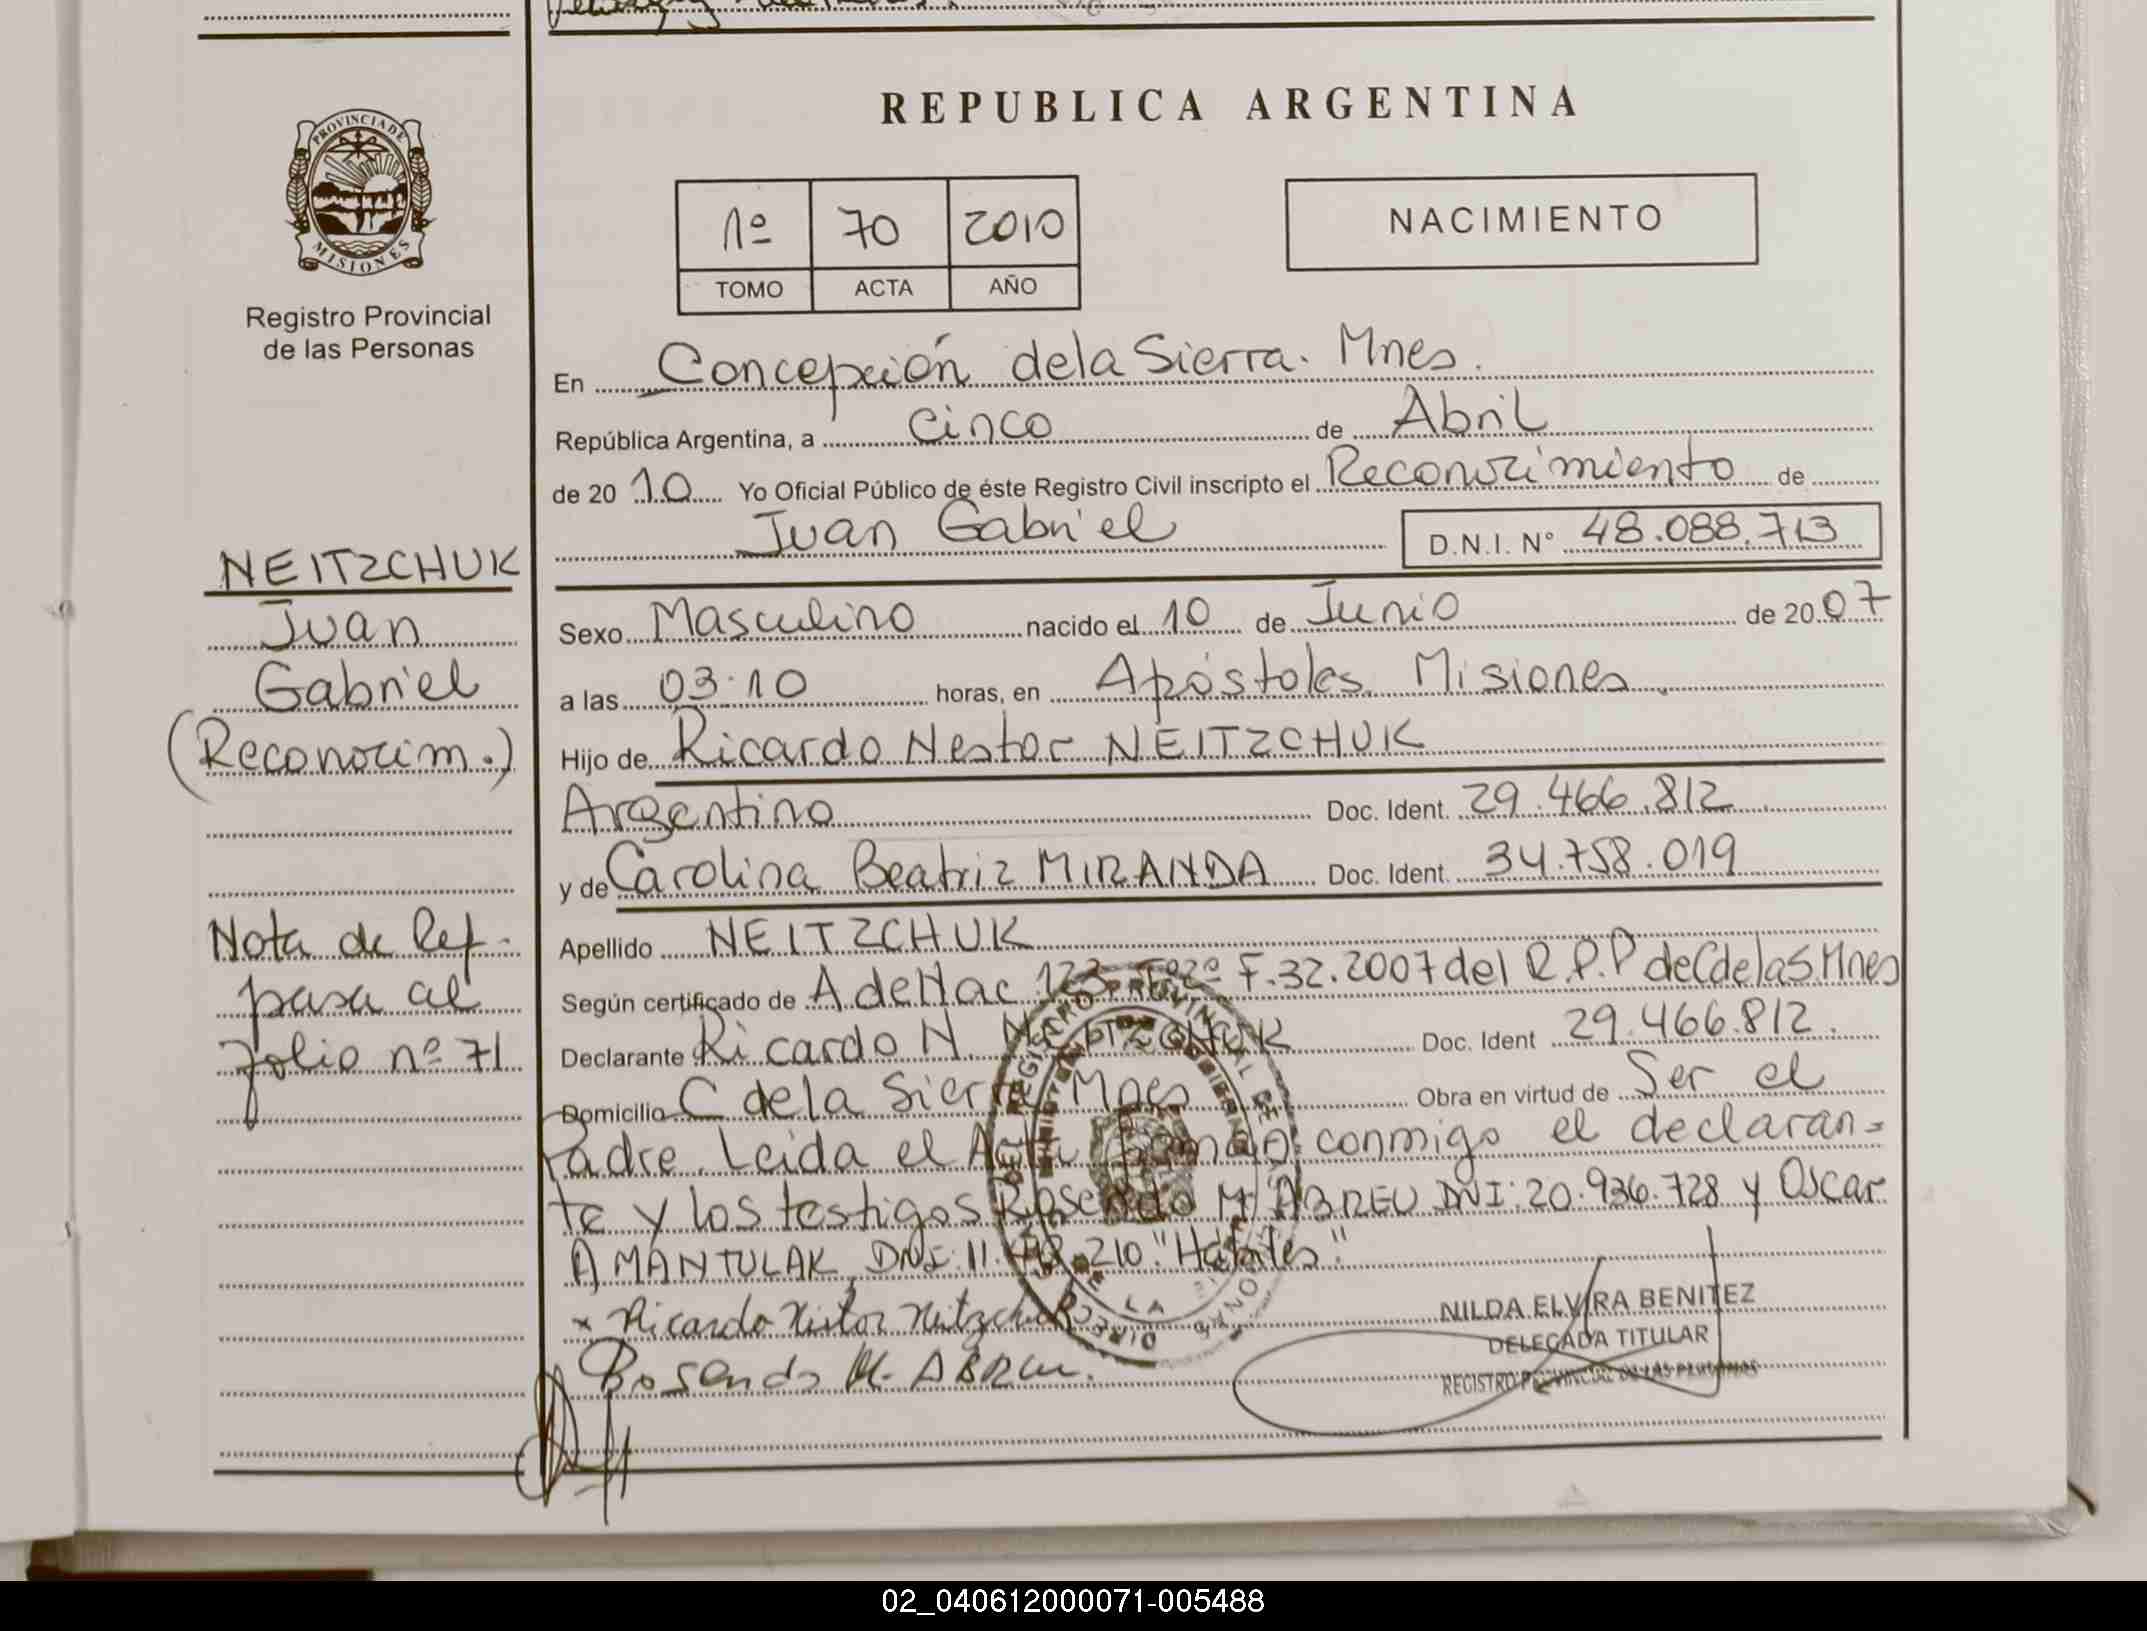 REPUBLICA ARGENTINA
PROVINCIA DE
MISIONES
Registro Provincial
de las Personas
1º 70 2010
TOMO ACTA AÑO
NACIMIENTO
En Concepción de la Sierra. Mnes.
República Argentina, a cinco de Abril
de 20 10 Yo Oficial Público de éste Registro Civil inscripto el Reconocimiento de
Juan Gabriel D.N.I. Nº 48.088.713
NEITZCHUK
Juan
Gabriel
(Reconocim.)
Nota de Ref.
pasa al
folio nº 71
Sexo Masculino nacido el 10 de Junio de 20 07
a las 03.10 horas, en Apóstoles Misiones.
Hijo de Ricardo Nestor NEITZCHUK
Argentino Doc. Ident. 29.466.812
y de Carolina Beatriz MIRANDA Doc. Ident. 34.758.019
Apellido NEITZCHUK
Según certificado de A de Nac 123 Tº 2º F.32.2007 del R.P.P de C de la S. Mnes
Declarante Ricardo N. NEITZCHUK Doc. Ident 29.466.812.
Domicilio C de la Sierra Mnes Obra en virtud de Ser el
Padre. Leida el Acta Firman conmigo el declaran=
te y los testigos Rosendo M. ABREU DNI: 20.936.728 y Oscar
A MANTULAK, DNI: 11. 210 "Hábiles"
x Ricardo Nestor Neitzchuk
Rosendo M. ABREU.
NILDA ELVIRA BENITEZ
DELEGADA TITULAR
REGISTRO PROVINCIAL DE LAS PERSONAS
02_040612000071-005488